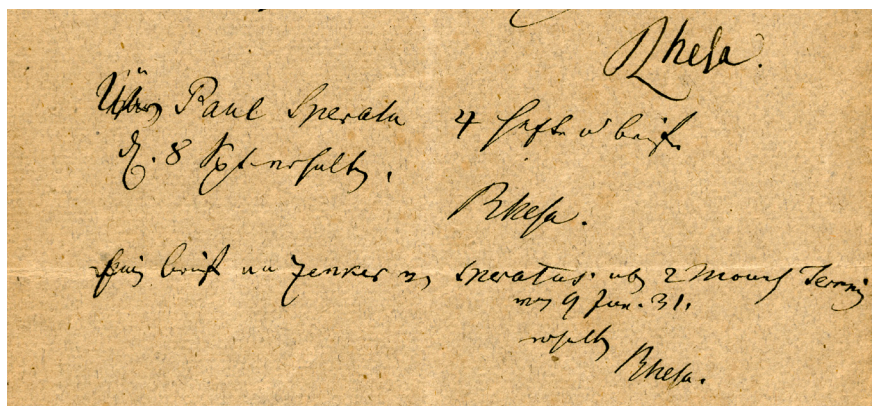 Rhesa.
Über Paul Sperata 4 Hefte u briefe
d. 8 Sept erhalten.
Rhesa.
brief an Zenker Speratus. 2 Monat Termin
9 Jun. 31.
erhalten
Rhesa.